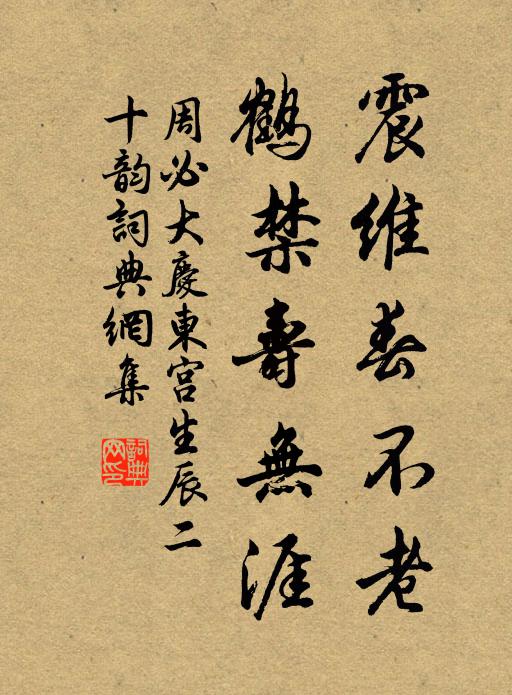 震維春不老
鶴禁壽無涯
周必大慶東宮生辰二
十韵詞典網集
詞典網印